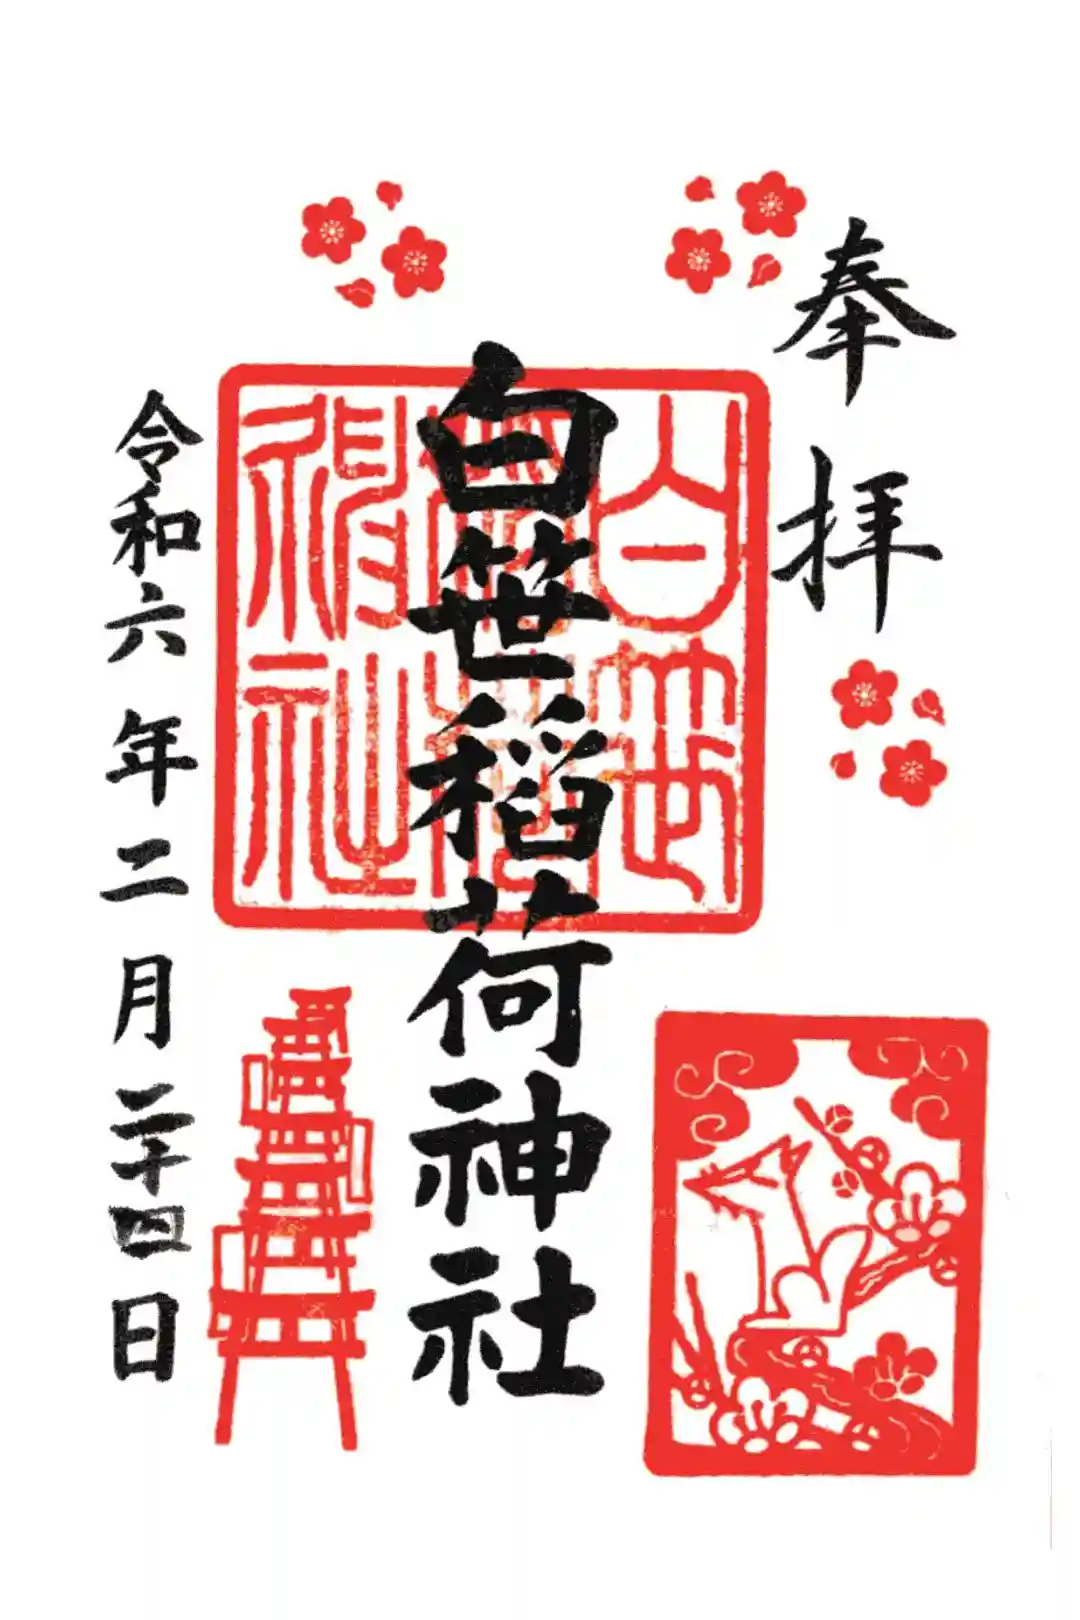 奉拝
白笹稲荷神社
白笹稲荷神社
令和六年二月二十四日